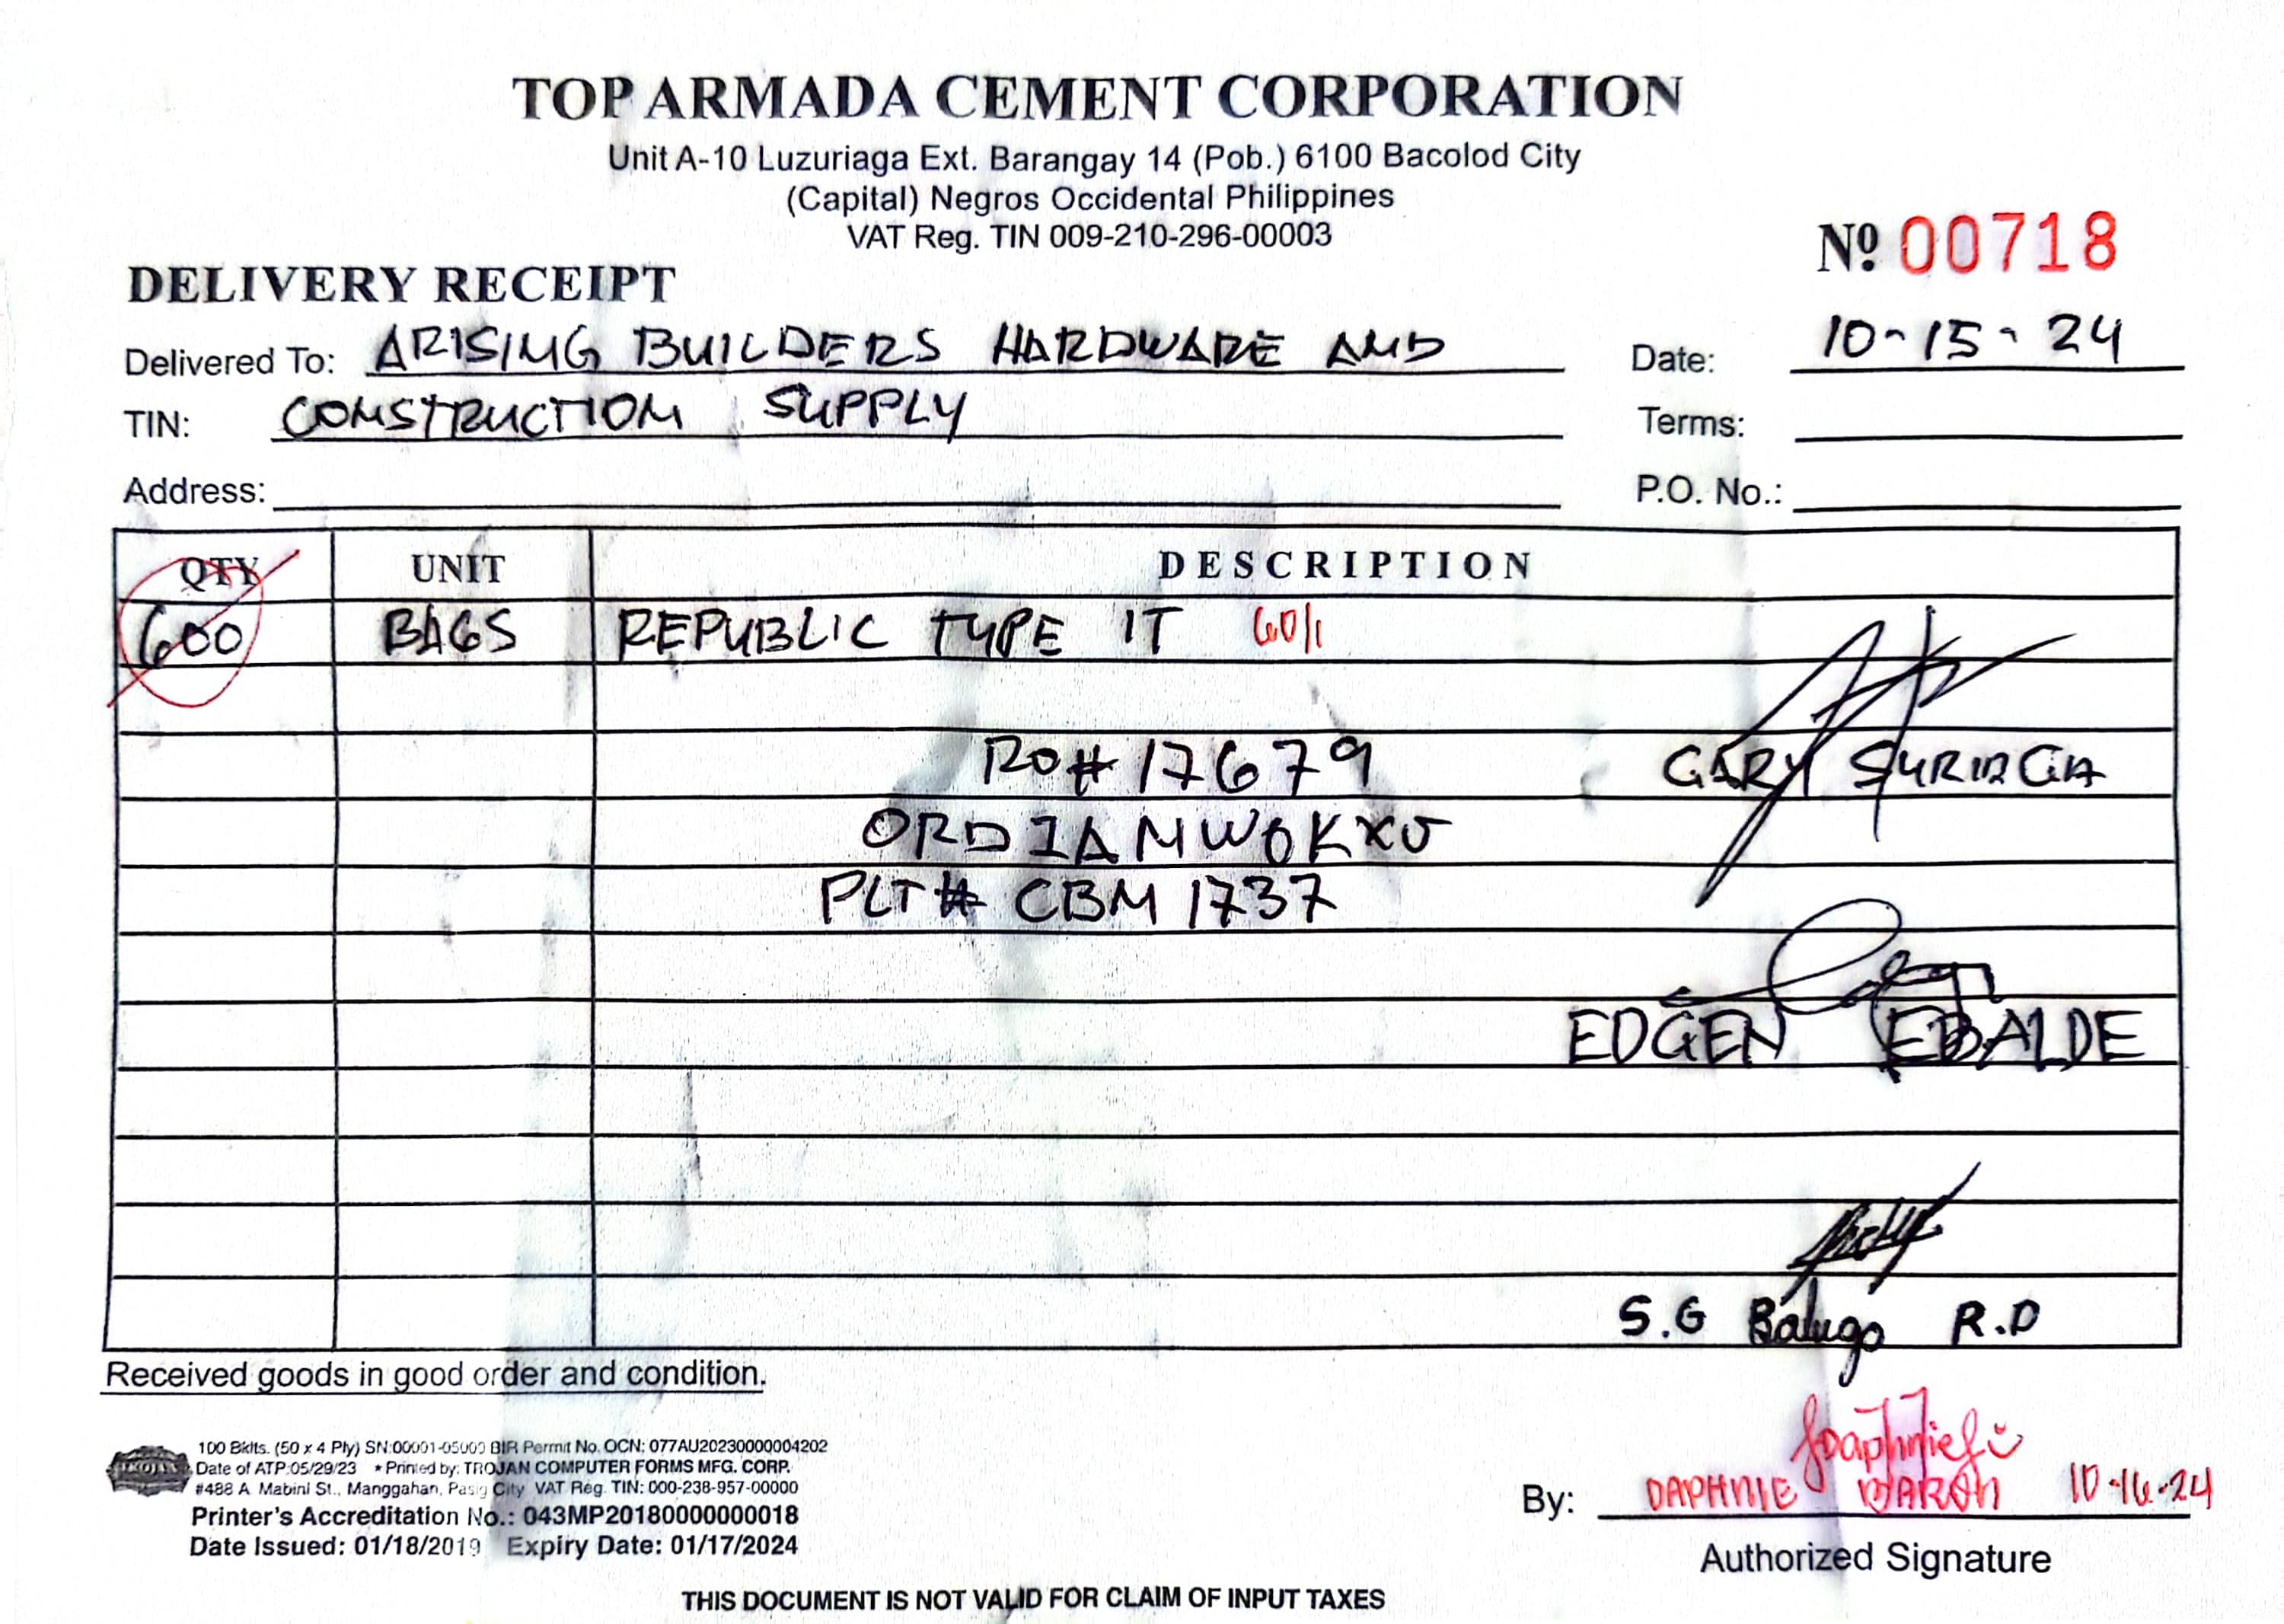 TOP ARMADA CEMENT CORPORATION
Unit A-10 Luzuriaga Ext. Barangay 14 (Pob.) 6100 Bacolod City
(Capital) Negros Occidental Philippines
VAT Reg. TIN 009-210-296-00003
Nº 00718
DELIVERY RECEIPT
Delivered To: ARISING BUILDERS HARDWARE AND Date: 10-15-24
TIN: CONSTRUCTION SUPPLY Terms:
Address: P.O. No.:
QTY UNIT DESCRIPTION
600 BAGS REPUBLIC TYPE 1T
RO# 17679 GARY
ORD IAMWOKXU
PLT# CBM 1737
EDGEN EBALDE
S.G Balugo R.D
Received goods in good order and condition.
100 Bklts. (50 x 4 Ply) SN:00001-05000 BIR Permit No. OCN: 077AU20230000004202
TROJAN Date of ATP:05/29/23 * Printed by: TROJAN COMPUTER FORMS MFG. CORP.
#488 A. Mabini St., Manggahan, Pasig City VAT Reg. TIN: 000-238-957-00000
Printer's Accreditation No.: 043MP20180000000018
Date Issued: 01/18/2019 Expiry Date: 01/17/2024
By: DAPHNIE 10-16-24
Authorized Signature
THIS DOCUMENT IS NOT VALID FOR CLAIM OF INPUT TAXES